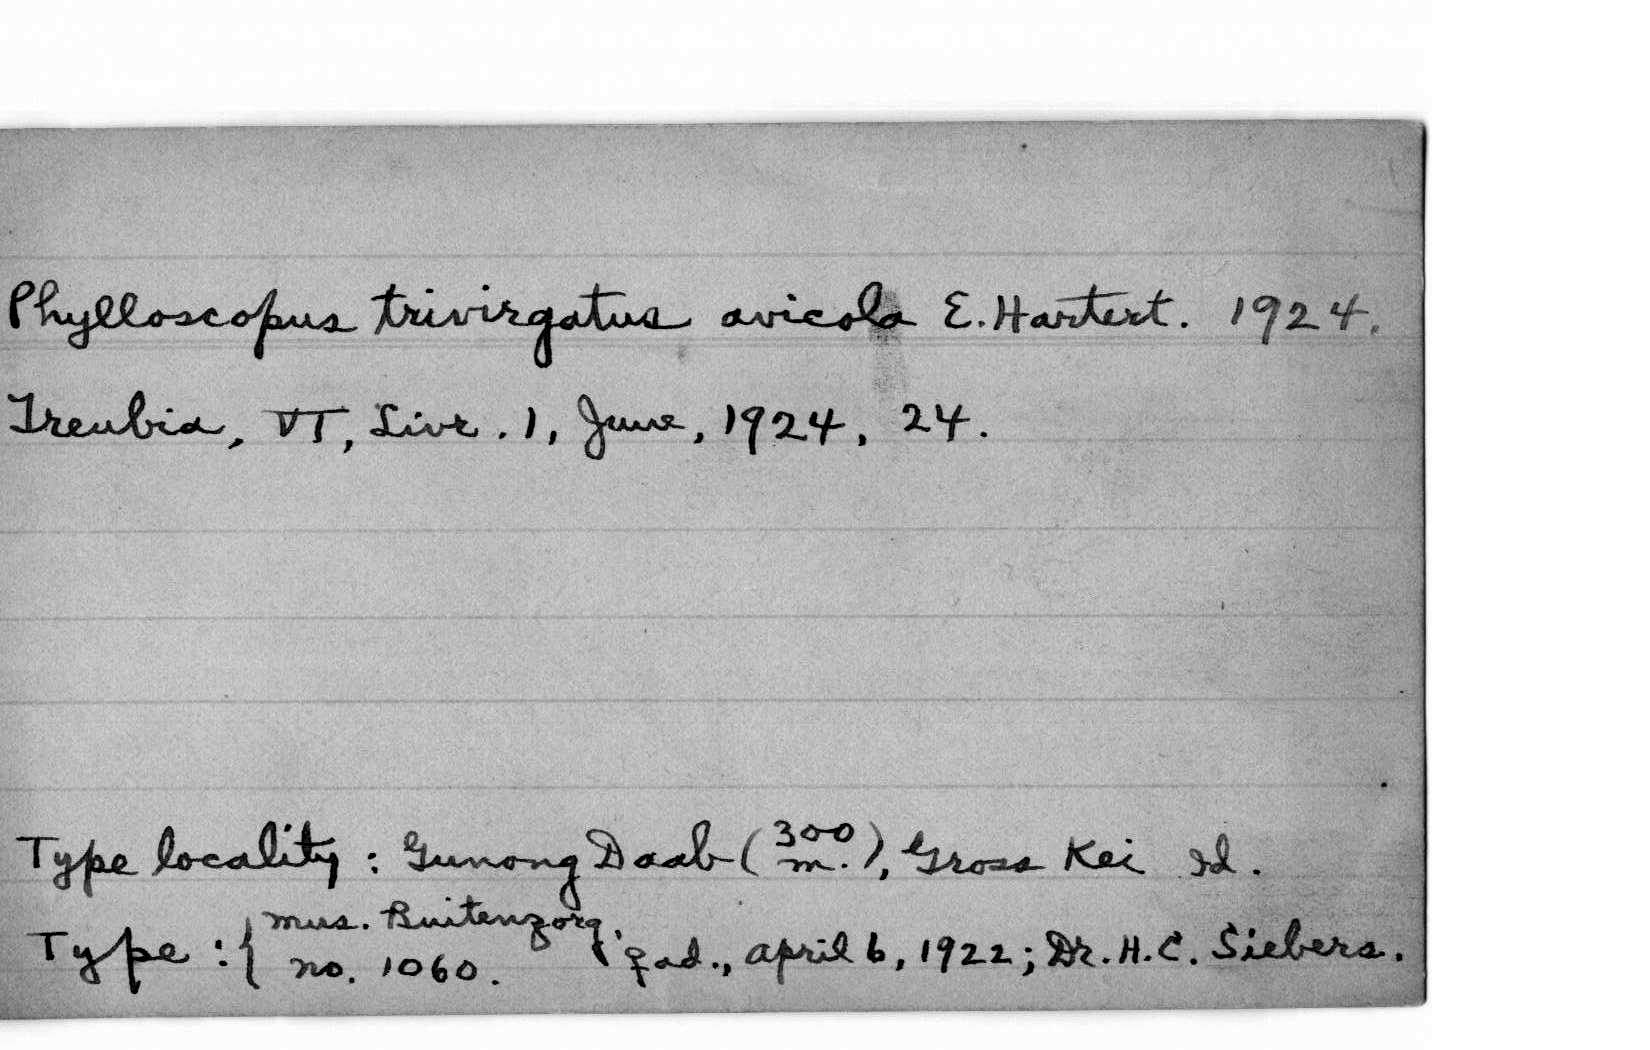 Phylloscopus trivirgatus avicola E. Hartert. 1924.
Treubia, VI, Livr. 1, June, 1924, 24.
Type locality: Gunong Daab (300 m.), Gross Kei Id.
Type: { Mus. Buitenzorg.
no. 1060. ♀ ad., April 6, 1922; Dr. H. C. Siebers.